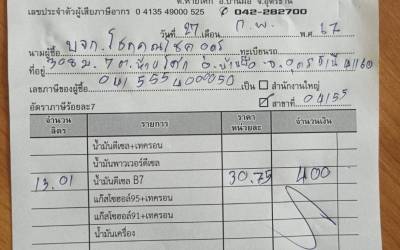 ต.ทายโศก อ.บ้านผือ จ.อุดรธานี
เลขประจำตัวผู้เสียภาษีอากร 0 4135 49000 525 042-282700
วันที่ 27 เดือน ก.พ. พ.ศ. 67
นามผู้ซื้อ บจก. โชคคณโชค อุดร ทะเบียนรถ
ที่อยู่ 308 ม.7 ต. อ.บ้านผือ จ.อุดรธานี 41160
เลขภาษีของผู้ซื้อ 041 555 400050 เป็น สำนักงานใหญ่
อัตราภาษีร้อยละ7 สาขาที่ 04155
จำนวนลิตร รายการ ราคาหน่วยละ จำนวนเงิน
น้ำมันดีเซล+เทครอน
น้ำมันพาวเวอร์ดีเซล
13.01 น้ำมันดีเซล B7 30.75 400
แก๊สโซฮอล์95+เทครอน
แก๊สโซฮอล์91+เทครอน
น้ำมันเครื่อง